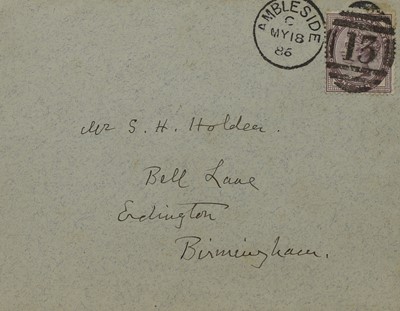 AMBLESIDE
C
MY 18
86
13
Mr S. H. Holden.
Bell Lane
Erdington
Birmingham.